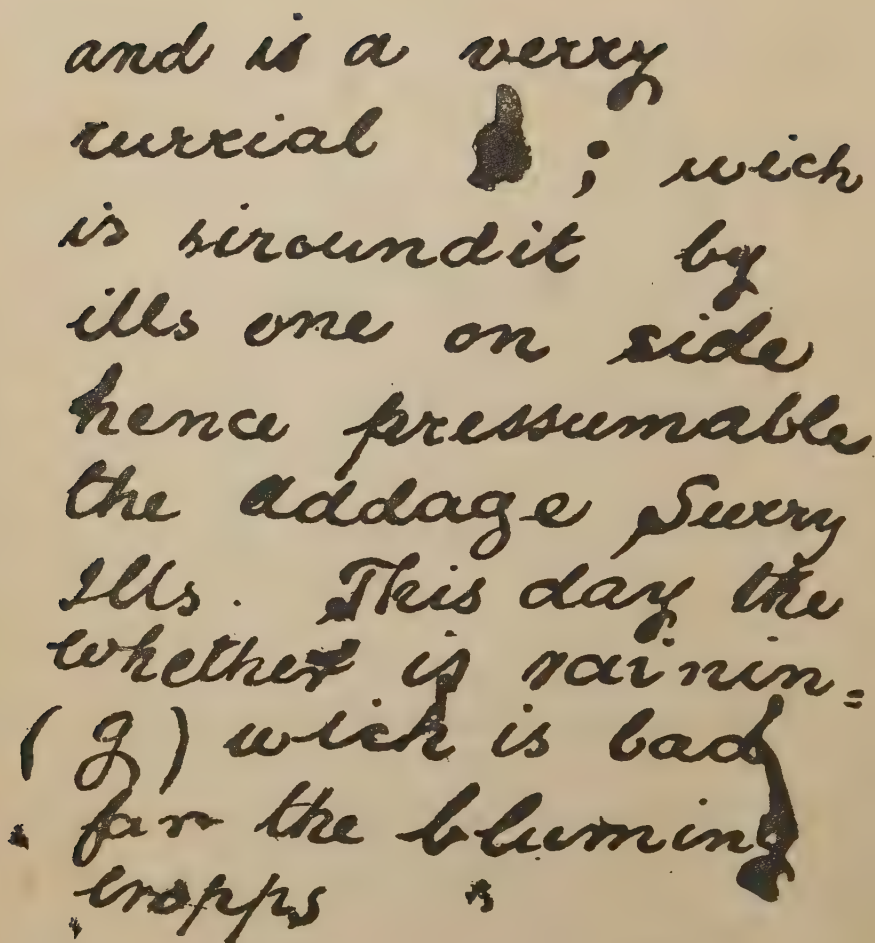 and is a verry
rurrial ; wich
is siroundit by
ills one on side
hence pressumable
the addage Surry
Ills. This day the
whether is rainin=
(g) wich is bad
far the blumin
cropps